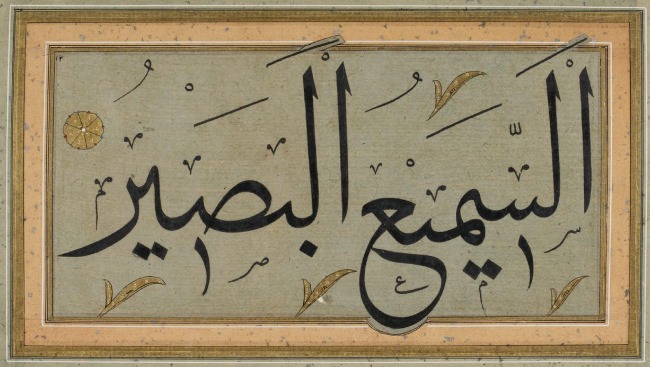 السَّمِيْعُ الْبَصِيْرُ